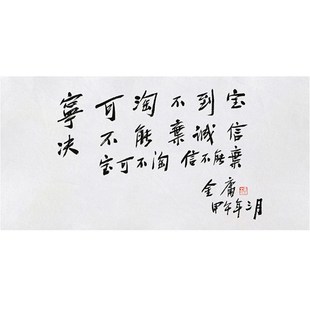 寧可淘不到宝
决不能棄诚信
宝可不淘 信不能棄
金庸
甲午年三月